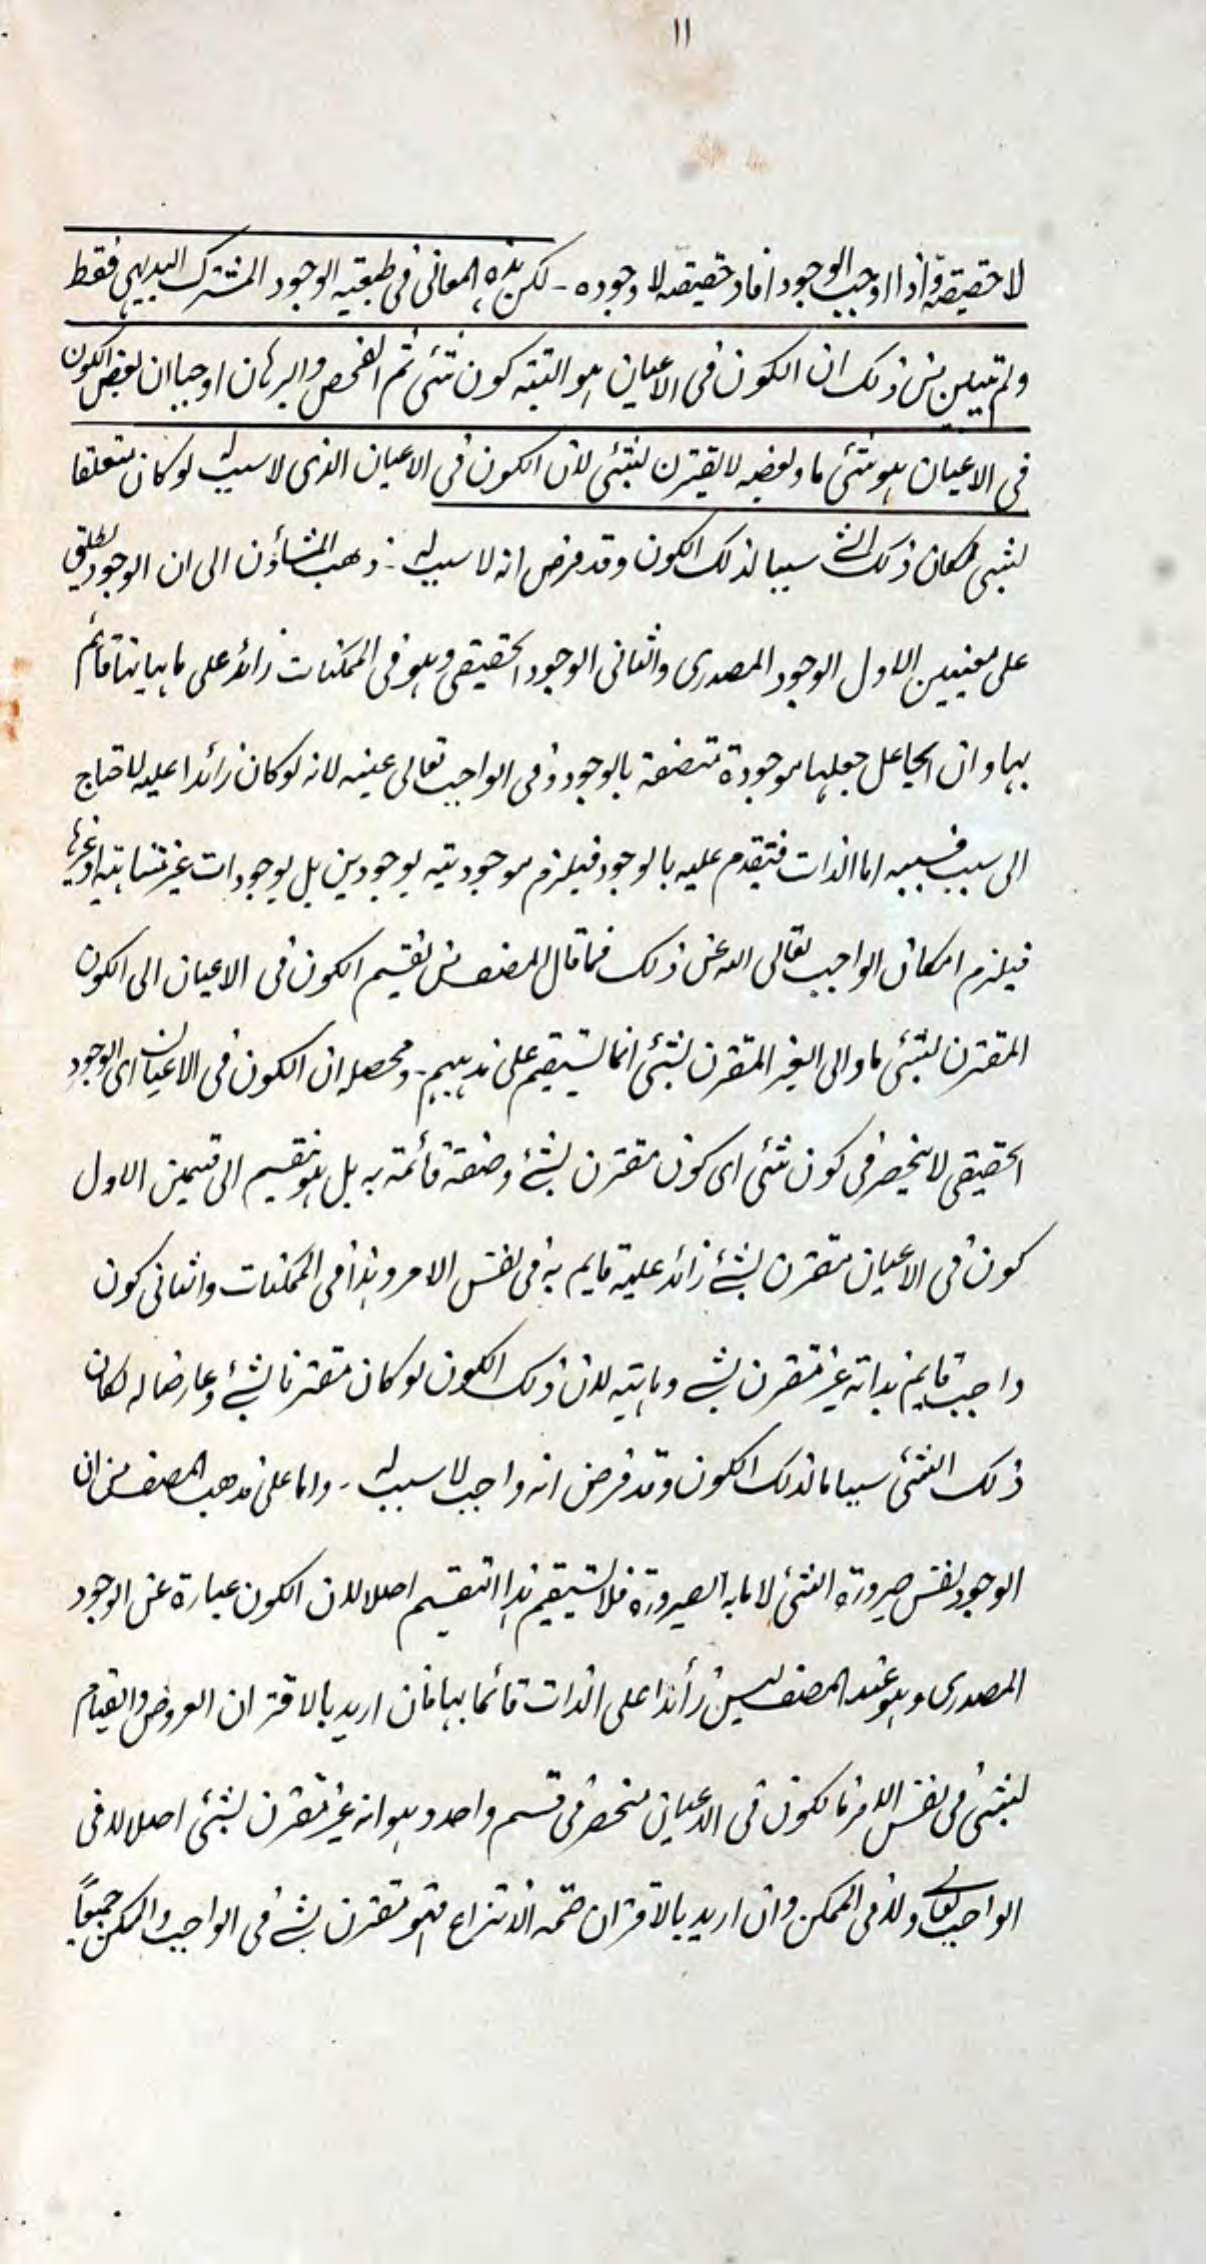 ١١
لا حقيقة و اذا اوجب الوجود افاد حقيقة لا وجوده - لكن هذه المعانى فى طبيعة الوجود المشترك البديهى فقط
ولم تبين من ذلك ان الكون فى الاعيان هو البتة كون شئى ثم الفحص والبرهان اوجبا ان بعض الكون
فى الاعيان هو شئى ما وبعضه لا يقترن بشئى لان الكون فى الاعيان الذى لا سبب له لو كان متعلقا
بشئى لكان ذلك الشئ سببا لذلك الكون وقد فرض انه لا سبب له - ذهب المشاؤن الى ان الوجود يطلق
على معنيين الاول الوجود المصدرى والثانى الوجود الحقيقى وهو فى الممكنات زائد على ماهياتها قائم
بها وان الجاعل جعلها موجودة متصفة بالوجود وفى الواجب تعالى عينه لانه لو كان زائدا عليه لاحتاج
الى سبب فسببه اما الذات فيتقدم عليه بالوجود فيلزم موجوديته بوجودين بل بوجودات غير متناهية او غيرها
فيلزم امكان الواجب تعالى الله عن ذلك فما قال المصنف من تقسيم الكون فى الاعيان الى الكون
المقترن بشئى ما والى الغير المقترن بشئى انما يستقيم على مذهبهم - ومحصله ان الكون فى الاعيان اى الوجود
الحقيقى لا ينحصر فى كون شئى اى كون مقترن بشئ وصفة قائمة به بل هو تقسيم الى قسمين الاول
كون فى الاعيان مقترن بشئ زائد عليه قايم به فى نفس الامر وهذا فى الممكنات والثانى كون
واجب قايم بذاته غير مقترن بشئ وماهيته لان ذلك الكون لو كان مقترنا بشئ وعارضا له لكان
ذلك الشئى سببا ما لذلك الكون وقد فرض انه واجب لا سبب له - واما على مذهب المصنف من ان
الوجود نفس صيرورة الشئى لا ما به الصيرورة فلا يستقيم هذا التقسيم اصلا لان الكون عبارة عن الوجود
المصدرى وهو عند المصنف ليس زأئدا على الذات قائما بها فان اريد بالاقتران العروض والقيام
بشئى فى نفس الامر فالكون فى الاعيان منحصر فى قسم واحد وهو انه غير مقترن بشئى اصلا لا فى
الواجب تعالى ولا فى الممكن وان اريد بالاقتران صحة الانتزاع فهو مقترن بشئ فى الواجب والممكن جميعاً